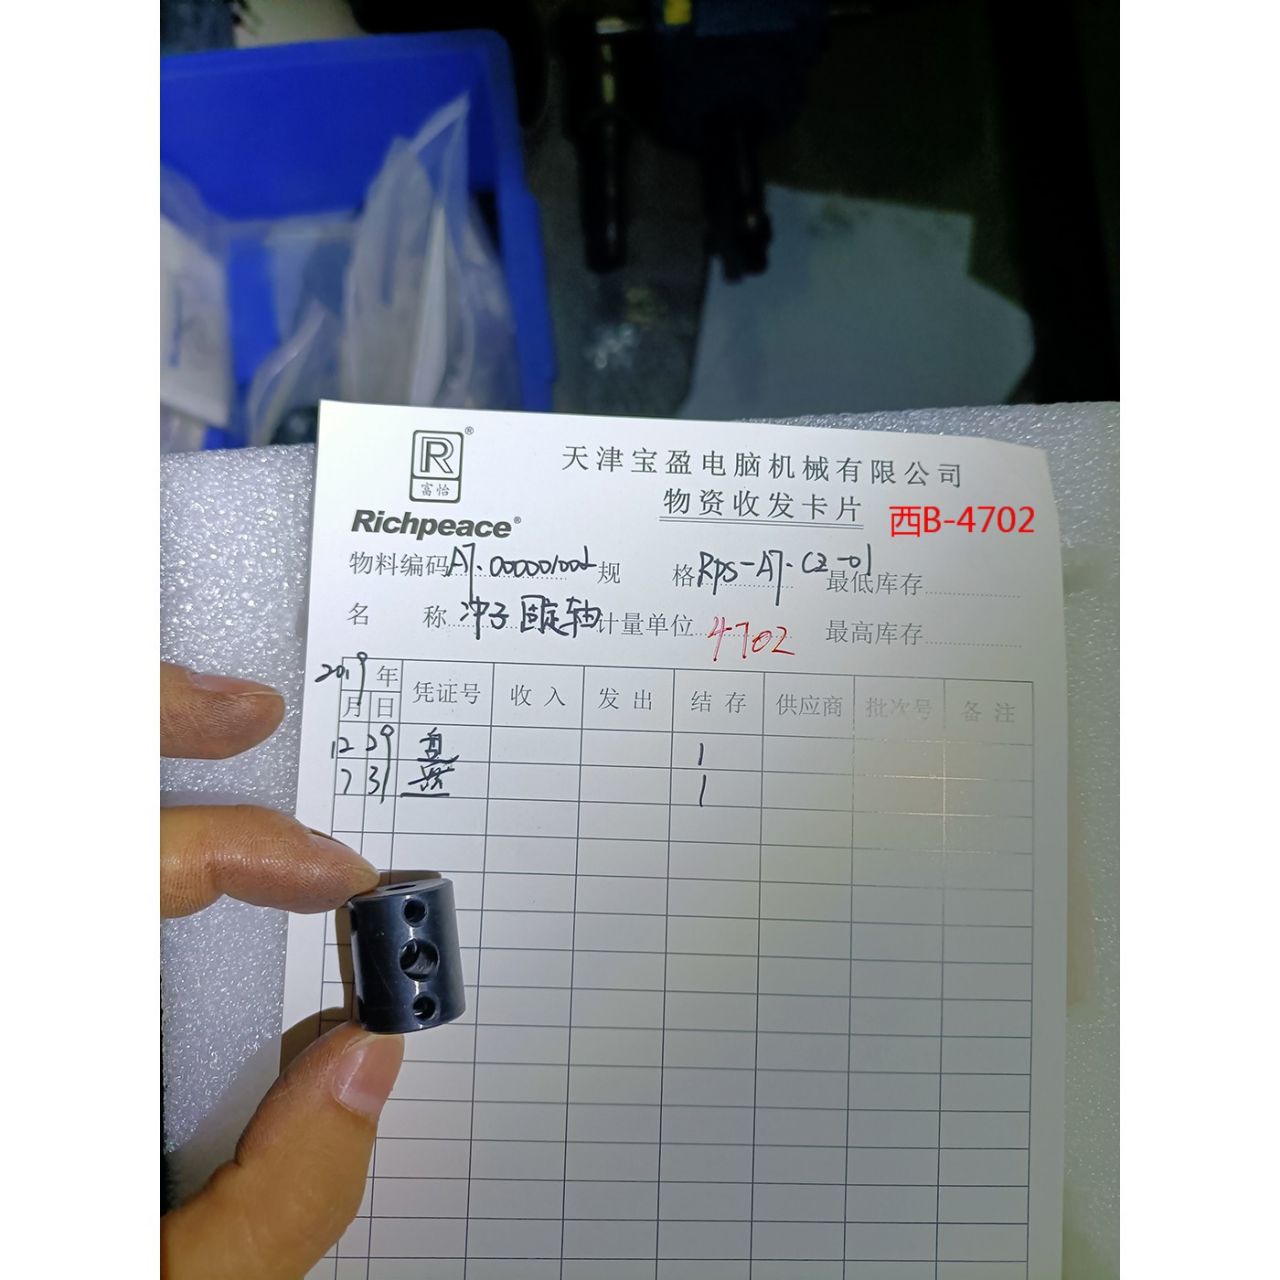 R®
富怡
Richpeace®
天津宝盈电脑机械有限公司
物资收发卡片
西B-4702
物料编码 A7.00000100 规格 RPS-A7-CZ-01 最低库存
名称 冲子固定轴 计量单位 4702 最高库存
2019年 凭证号 收入 发出 结存 供应商 批次号 备注
月 日
12 29 盘 1
7 31 盘 1